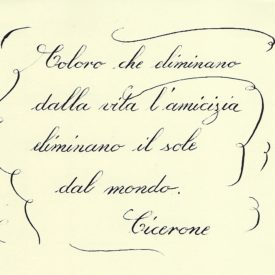 Coloro che eliminano
dalla vita l'amicizia
eliminano il sole
dal mondo.
Cicerone